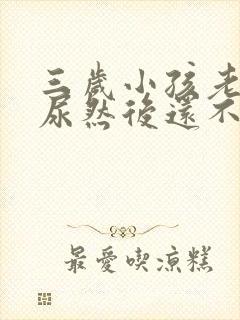 三歲小孩老
尿然後還不
最愛喫涼糕